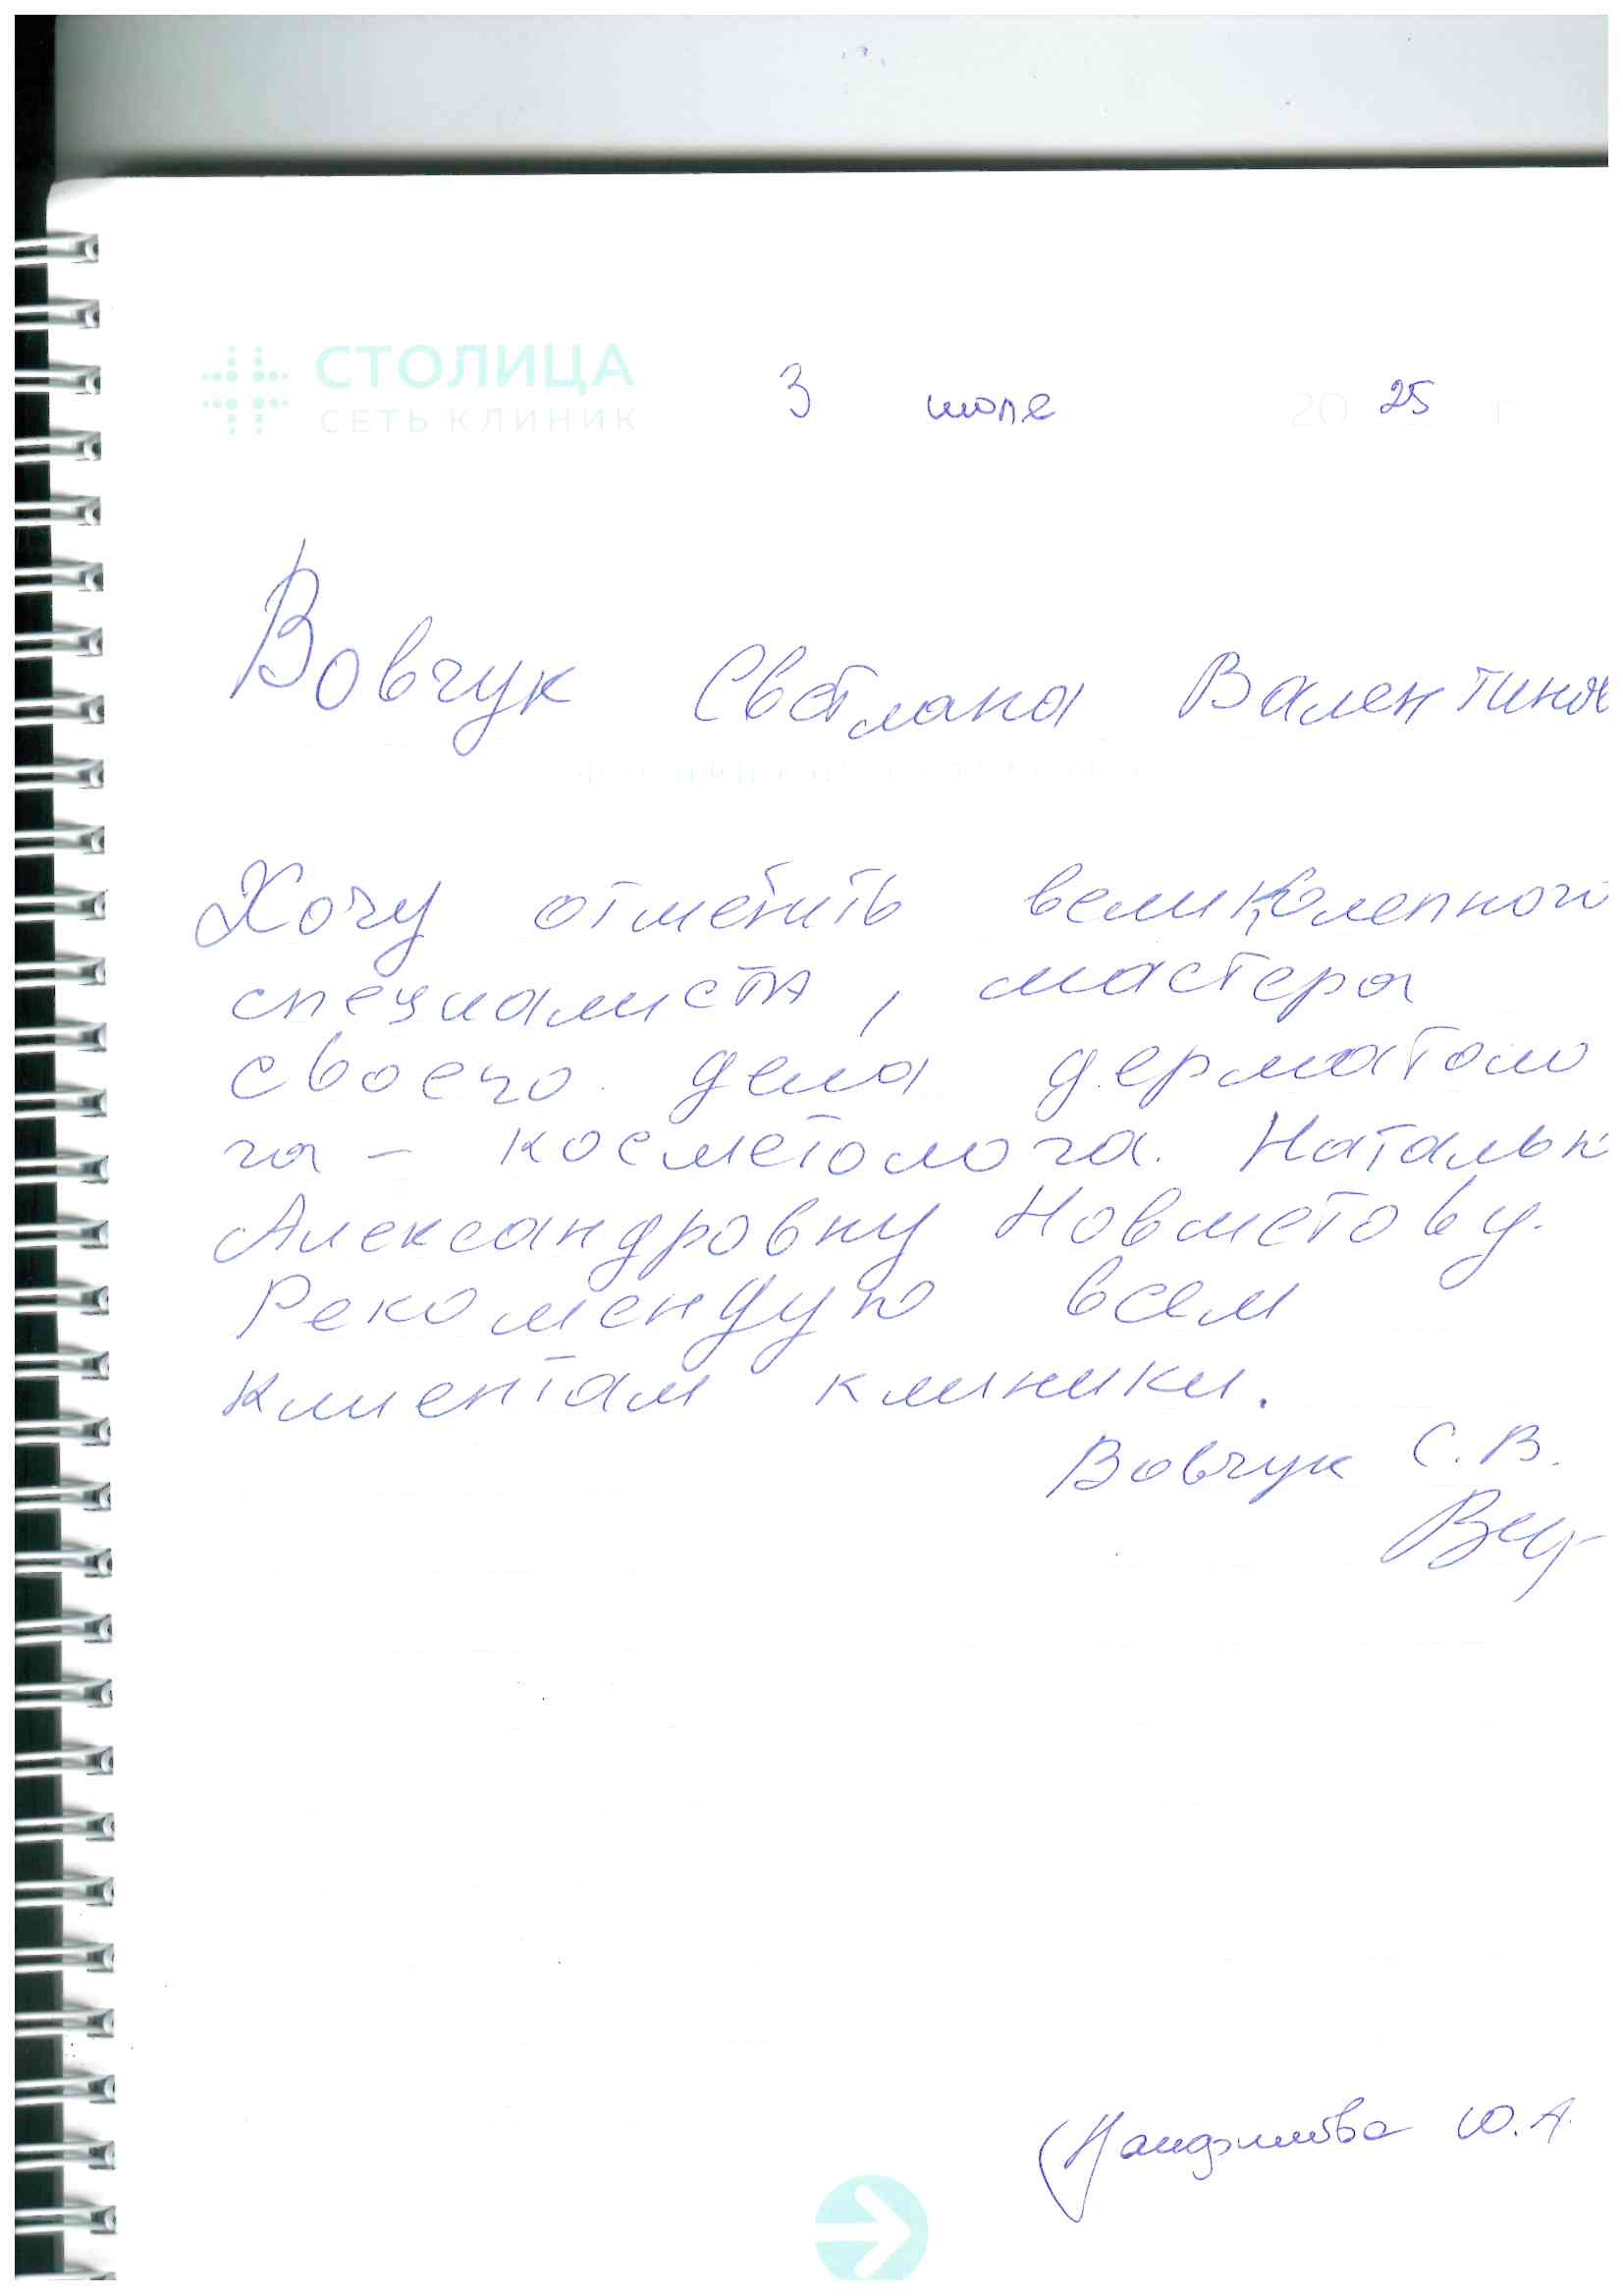 СТОЛИЦА
СЕТЬ КЛИНИК
3 июле 2025 г
Вовчук Светлана Валентина
Хочу отметить великолепного
специалиста, мастера
своего дела дерматоло
га - косметолога. Наталью
Александровну Новметову.
Рекомендую всем
клиентам клиники.
Вовчук С. В.
Ю. А.